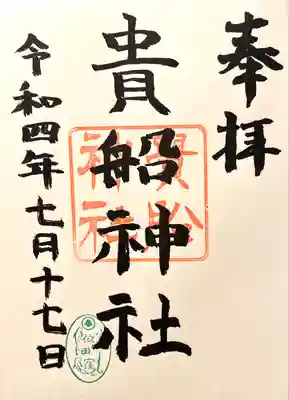 奉拝
貴船神社
貴船
神社
令和四年七月十七日